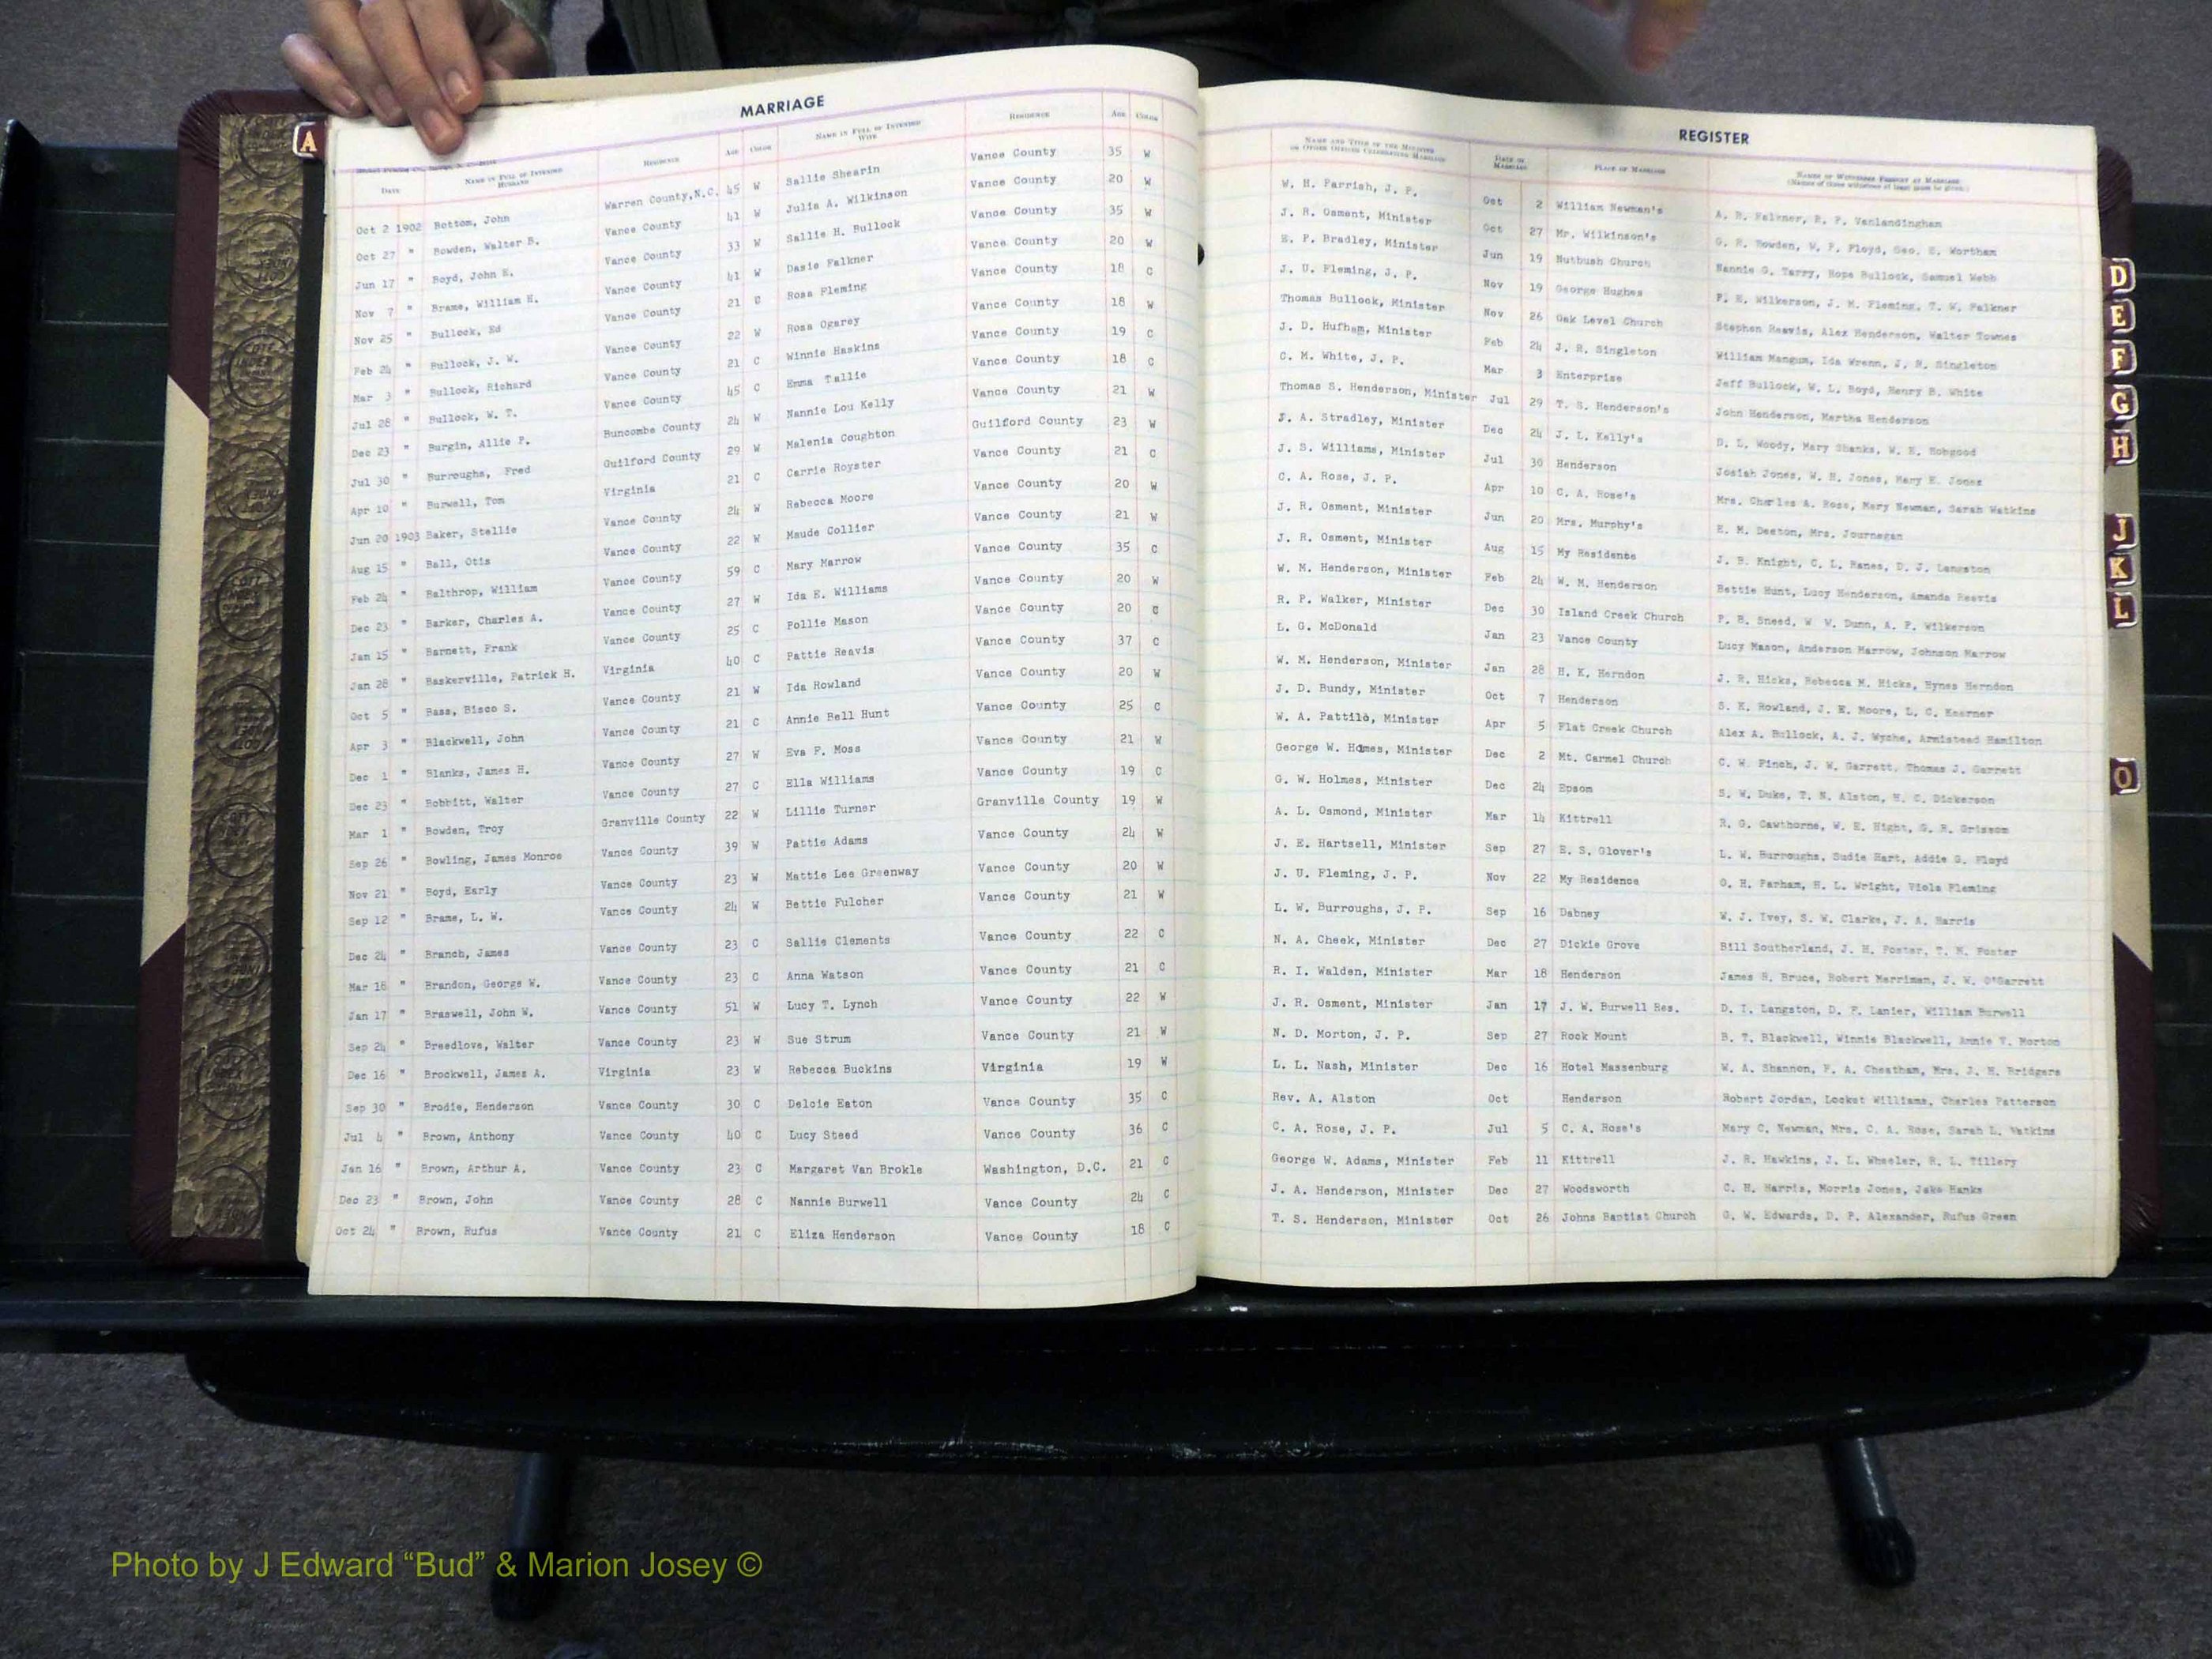 MARRIAGE
DATE NAME IN FULL OF INTENDED HUSBAND RESIDENCE AGE COLOR NAME IN FULL OF INTENDED WIFE RESIDENCE AGE COLOR
Oct 2 1902 Bottom, John Warren County, N.C. 45 W Sallie Shearin Vance County 35 W
Oct 27 " Bowden, Walter B. Vance County 41 W Julia A. Wilkinson Vance County 20 W
Jun 17 " Boyd, John E. Vance County 33 W Sallie H. Bullock Vance County 35 W
Nov 7 " Brame, William H. Vance County 41 W Dasie Falkner Vance County 20 W
Nov 25 " Bullock, Ed Vance County 21 C Rosa Fleming Vance County 18 C
Feb 24 " Bullock, J. W. Vance County 22 W Rosa Ogarey Vance County 18 W
Mar 3 " Bullock, Richard Vance County 21 C Winnie Haskins Vance County 19 C
Jul 28 " Bullock, W. T. Vance County 45 C Emma Tallie Vance County 18 C
Dec 23 " Burgin, Allie P. Buncombe County 24 W Nannie Lou Kelly Vance County 21 W
Jul 30 " Burroughs, Fred Guilford County 29 W Malenia Coughton Guilford County 23 W
Apr 10 " Burwell, Tom Virginia 21 C Carrie Royster Vance County 21 C
Jun 20 1903 Baker, Stellie Vance County 24 W Rebecca Moore Vance County 20 W
Aug 15 " Ball, Otis Vance County 22 W Maude Collier Vance County 21 W
Feb 24 " Balthrop, William Vance County 59 C Mary Marrow Vance County 35 C
Dec 23 " Barker, Charles A. Vance County 27 W Ida E. Williams Vance County 20 W
Jan 15 " Barnett, Frank Vance County 25 C Pollie Mason Vance County 20 C
Jan 28 " Baskerville, Patrick H. Virginia 40 C Pattie Reavis Vance County 37 C
Oct 5 " Bass, Bisco S. Vance County 21 W Ida Rowland Vance County 20 W
Apr 3 " Blackwell, John Vance County 21 C Annie Bell Hunt Vance County 25 C
Dec 1 " Blanks, James H. Vance County 27 W Eva F. Moss Vance County 21 W
Dec 23 " Bobbitt, Walter Vance County 27 C Ella Williams Vance County 19 C
Mar 1 " Bowden, Troy Granville County 22 W Lillie Turner Granville County 19 W
Sep 26 " Bowling, James Monroe Vance County 39 W Pattie Adams Vance County 24 W
Nov 21 " Boyd, Early Vance County 23 W Mattie Lee Greenway Vance County 20 W
Sep 12 " Brame, L. W. Vance County 24 W Bettie Fulcher Vance County 21 W
Dec 24 " Branch, James Vance County 23 C Sallie Clements Vance County 22 C
Mar 18 " Brandon, George W. Vance County 23 C Anna Watson Vance County 21 C
Jan 17 " Braswell, John W. Vance County 51 W Lucy T. Lynch Vance County 22 W
Sep 24 " Breedlove, Walter Vance County 23 W Sue Strum Vance County 21 W
Dec 16 " Brockwell, James A. Virginia 23 W Rebecca Buckins Virginia 19 W
Sep 30 " Brodie, Henderson Vance County 30 C Delcie Eaton Vance County 35 C
Jul 4 " Brown, Anthony Vance County 40 C Lucy Steed Vance County 36 C
Jan 16 " Brown, Arthur A. Vance County 23 C Margaret Van Brokle Washington, D.C. 21 C
Dec 23 " Brown, John Vance County 28 C Nannie Burwell Vance County 24 C
Oct 24 " Brown, Rufus Vance County 21 C Eliza Henderson Vance County 18 C
REGISTER
NAME AND TITLE OF THE MINISTER OR OTHER OFFICER CELEBRATING MARRIAGE DATE OF MARRIAGE PLACE OF MARRIAGE NAMES OF WITNESSES PRESENT AT MARRIAGE
(Names of three witnesses at least must be given.)
W. H. Parrish, J. P. Oct 2 William Newman's A. B. Falkner, R. P. Vanlandingham
J. R. Osment, Minister Oct 27 Mr. Wilkinson's G. R. Bowden, W. P. Floyd, Geo. E. Wortham
E. P. Bradley, Minister Jun 19 Nutbush Church Nannie G. Tarry, Hope Bullock, Samuel Webb
J. U. Fleming, J. P. Nov 19 George Hughes F. E. Wilkerson, J. M. Fleming, T. W. Falkner
Thomas Bullock, Minister Nov 26 Oak Level Church Stephen Reavis, Alex Henderson, Walter Townes
J. D. Hufham, Minister Feb 24 J. R. Singleton William Mangum, Ida Wrenn, J. R. Singleton
C. M. White, J. P. Mar 3 Enterprise Jeff Bullock, W. L. Boyd, Henry B. White
Thomas S. Henderson, Minister Jul 29 T. S. Henderson's John Henderson, Martha Henderson
J. A. Stradley, Minister Dec 24 J. L. Kelly's D. L. Woody, Mary Shanks, W. E. Hobgood
J. S. Williams, Minister Jul 30 Henderson Josiah Jones, W. H. Jones, Mary E. Jones
C. A. Rose, J. P. Apr 10 C. A. Rose's Mrs. Charles A. Rose, Mary Newman, Sarah Watkins
J. R. Osment, Minister Jun 20 Mrs. Murphy's E. M. Deeton, Mrs. Journegan
J. R. Osment, Minister Aug 15 My Residence J. B. Knight, C. L. Hanes, D. J. Langston
W. M. Henderson, Minister Feb 24 W. M. Henderson Bettie Hunt, Lucy Henderson, Amanda Reavis
R. P. Walker, Minister Dec 30 Island Creek Church P. B. Sneed, W W. Dunn, A. P. Wilkerson
L. G. McDonald Jan 23 Vance County Lucy Mason, Anderson Marrow, Johnson Marrow
W. M. Henderson, Minister Jan 28 H. K. Herndon J. R. Hicks, Rebecca M. Hicks, Hynes Herndon
J. D. Bundy, Minister Oct 7 Henderson S. K. Rowland, J. E. Moore, L. C. Kearner
W. A. Pattilo, Minister Apr 5 Flat Creek Church Alex A. Bullock, A. J. Wyche, Armistead Hamilton
George W. Homes, Minister Dec 2 Mt. Carmel Church C. W. Finch, J. W. Garrett, Thomas J. Garrett
G. W. Holmes, Minister Dec 24 Epsom S. W. Duke, T. N. Alston, H. C. Dickerson
A. L. Osmond, Minister Mar 14 Kittrell R. G. Cawthorne, W. E. Hight, G. R. Grissom
J. E. Hartsell, Minister Sep 27 E. S. Glover's L. W. Burroughs, Sudie Hart, Addie G. Floyd
J. U. Fleming, J. P. Nov 22 My Residence O. H. Parham, H. L. Wright, Viola Fleming
L. W. Burroughs, J. P. Sep 16 Dabney W. J. Ivey, S. W. Clarke, J. A. Harris
N. A. Cheek, Minister Dec 27 Dickie Grove Bill Southerland, J. H. Foster, T. N. Foster
R. I. Walden, Minister Mar 18 Henderson James R. Bruce, Robert Merriman, J. W. O'Garrett
J. R. Osment, Minister Jan 17 J. W. Burwell Res. D. I. Langston, D. F. Lanier, William Burwell
N. D. Morton, J. P. Sep 27 Rock Mount B. T. Blackwell, Winnie Blackwell, Annie V. Morton
L. L. Nash, Minister Dec 16 Hotel Massenburg W. A. Shannon, F. A. Cheatham, Mrs. J. H. Bridgers
Rev. A. Alston Oct Henderson Robert Jordan, Locket Williams, Charles Patterson
C. A. Rose, J. P. Jul 5 C. A. Rose's Mary C. Newman, Mrs. C. A. Rose, Sarah L. Watkins
George W. Adams, Minister Feb 11 Kittrell J. R. Hawkins, J. L. Wheeler, R. L. Tillery
J. A. Henderson, Minister Dec 27 Woodsworth C. H. Harris, Morris Jones, Jake Hanks
T. S. Henderson, Minister Oct 26 Johns Baptist Church G. W. Edwards, D. P. Alexander, Rufus Green
A
D
E
F
G
H
J
K
L
O
Photo by J Edward “Bud” & Marion Josey ©